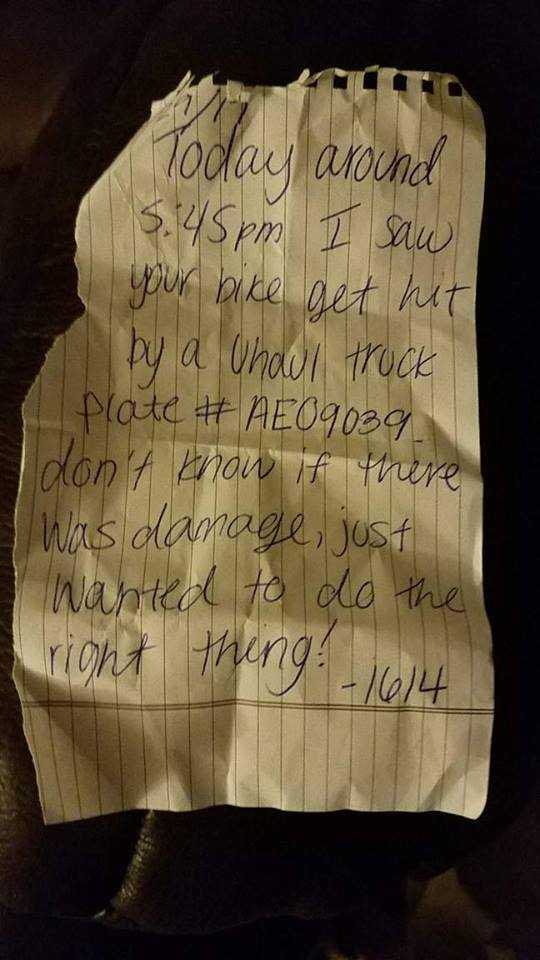 Today around
5:45pm I saw
your bike get hit
by a Uhaul truck
plate # AE09039
don't know if there
was damage, just
wanted to do the
right thing!
-1614